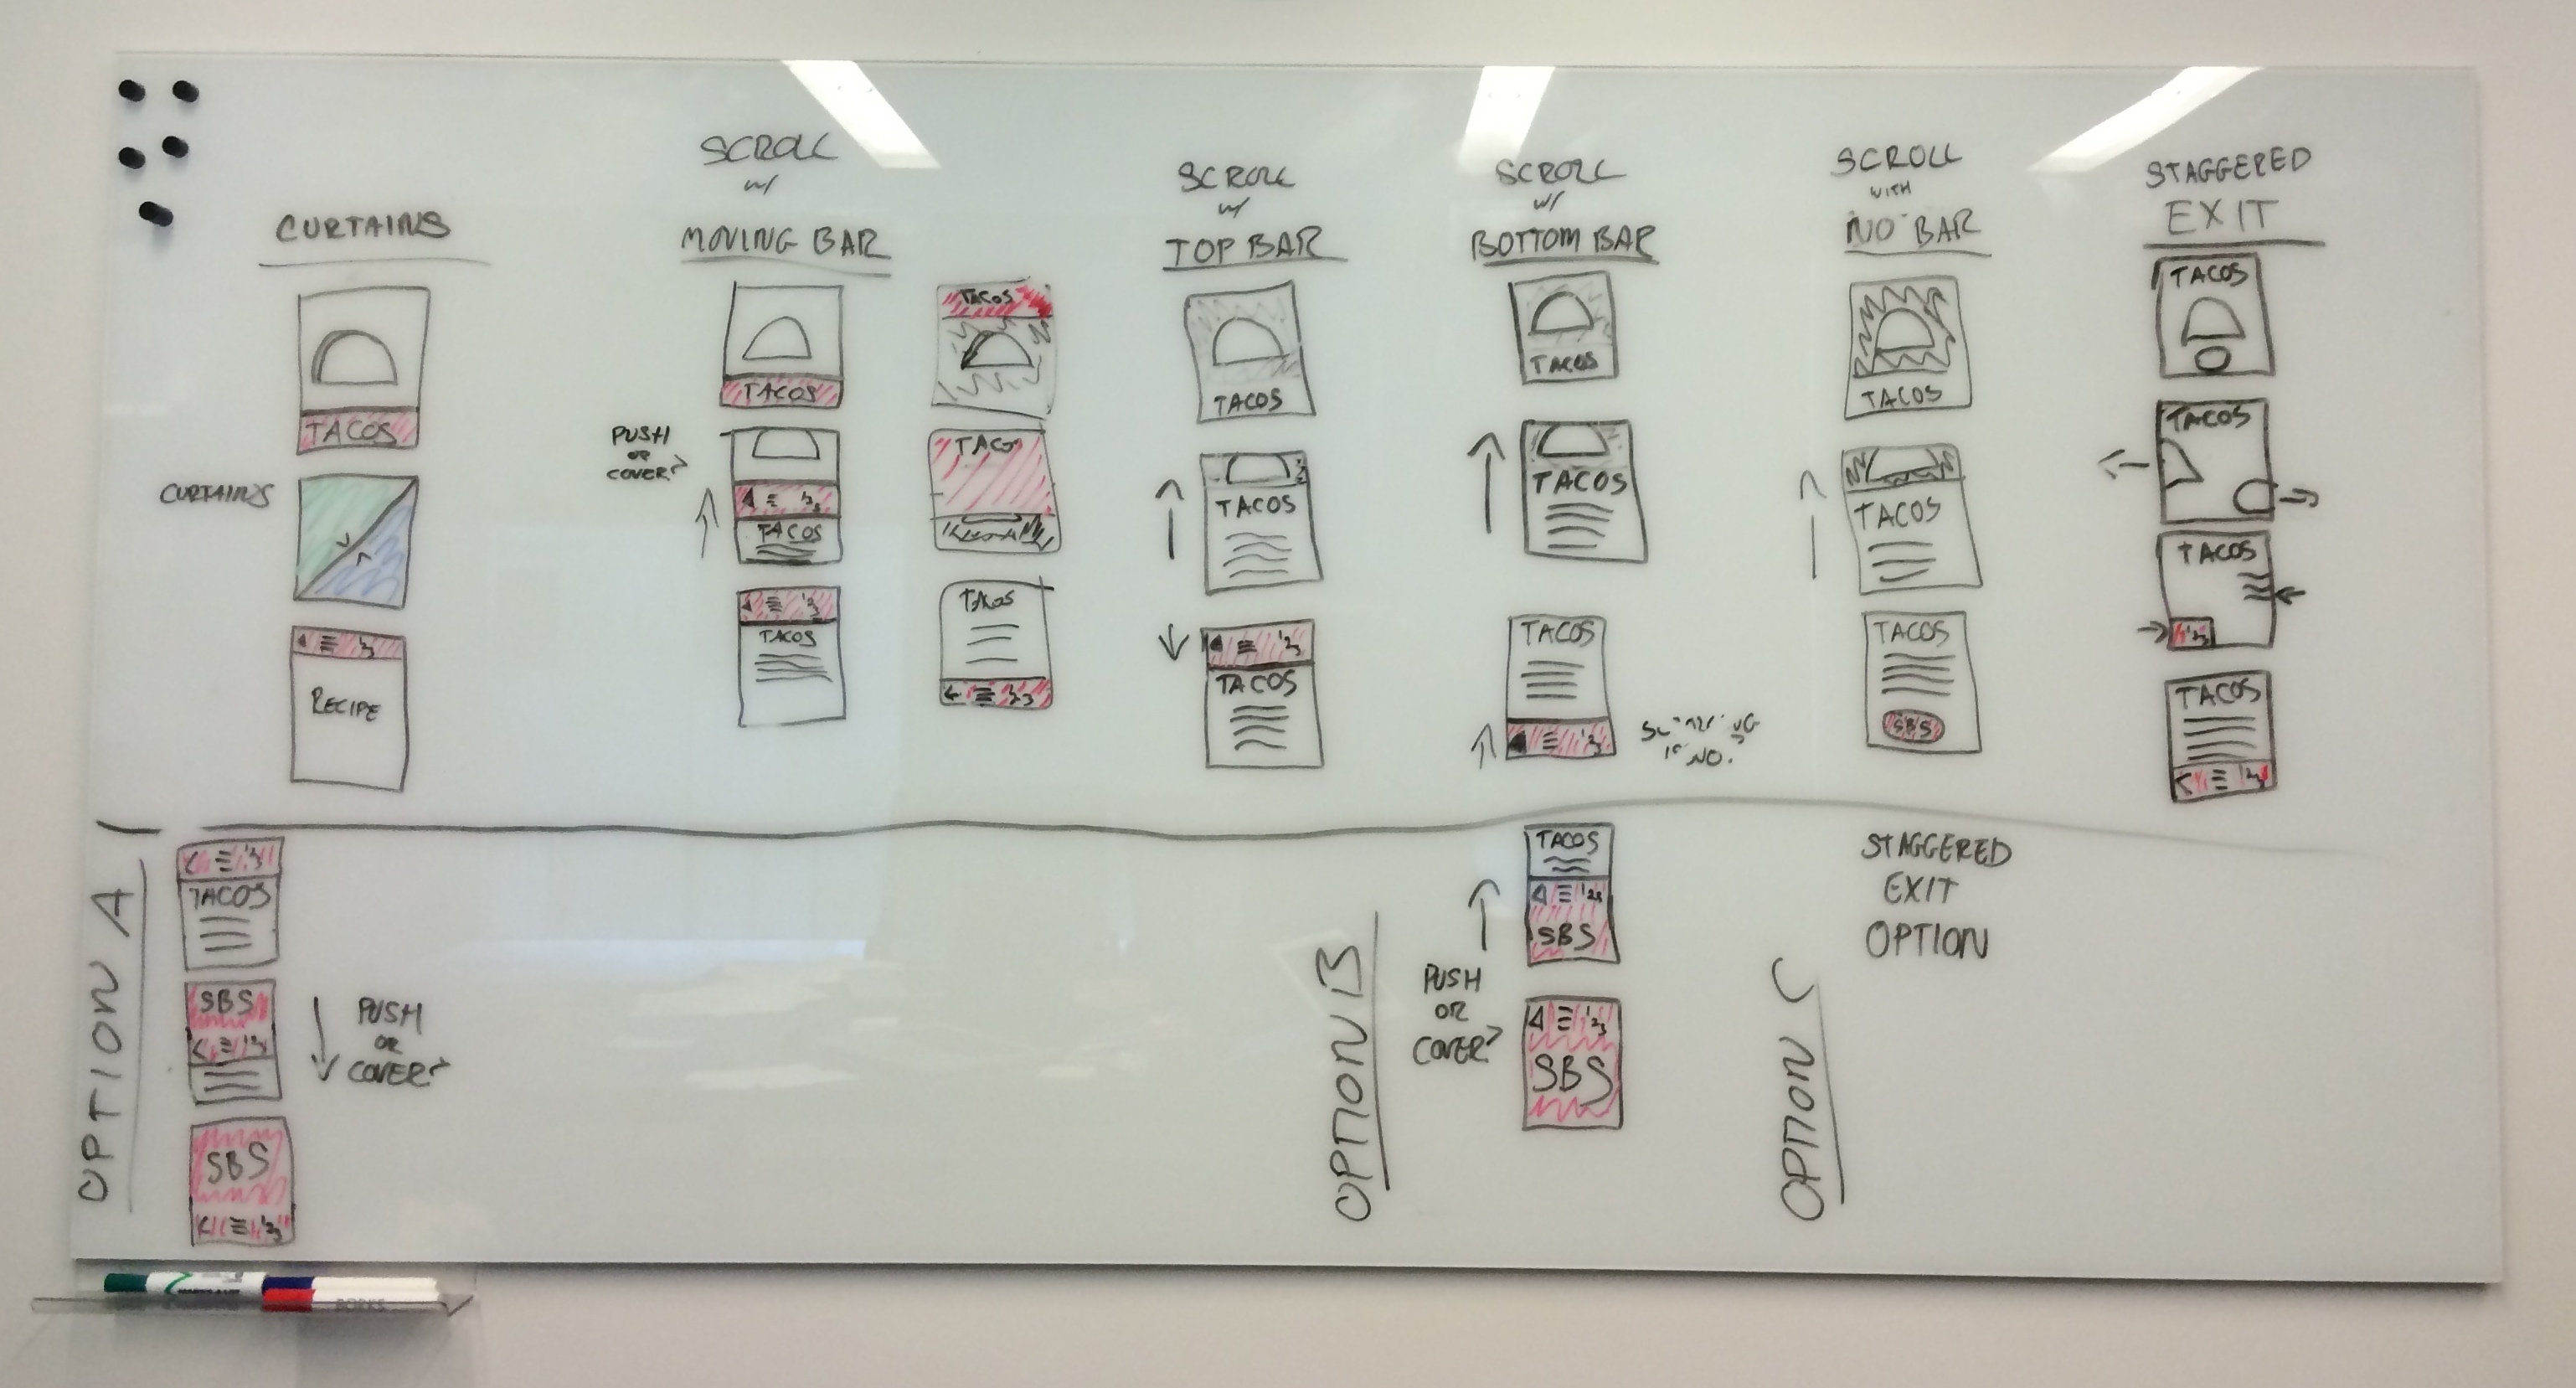 CURTAINS
TACOS
CURTAINS
RECIPE
SCROLL
w/
MOVING BAR
TACOS
PUSH
OR
COVER?
TACOS
TACOS
TACOS
TACO
TACOS
SCROLL
w/
TOP BAR
TACOS
TACOS
TACOS
SCROLL
w/
BOTTOM BAR
TACOS
TACOS
TACOS
SCROLL
WITH
NO BAR
TACOS
TACOS
TACOS
SBS
STAGGERED
EXIT
TACOS
TACOS
TACOS
TACOS
OPTION A
TACOS
SBS
PUSH
OR
COVER?
SBS
OPTION B
TACOS
SBS
PUSH
OR
COVER?
SBS
OPTION C
STAGGERED
EXIT
OPTION